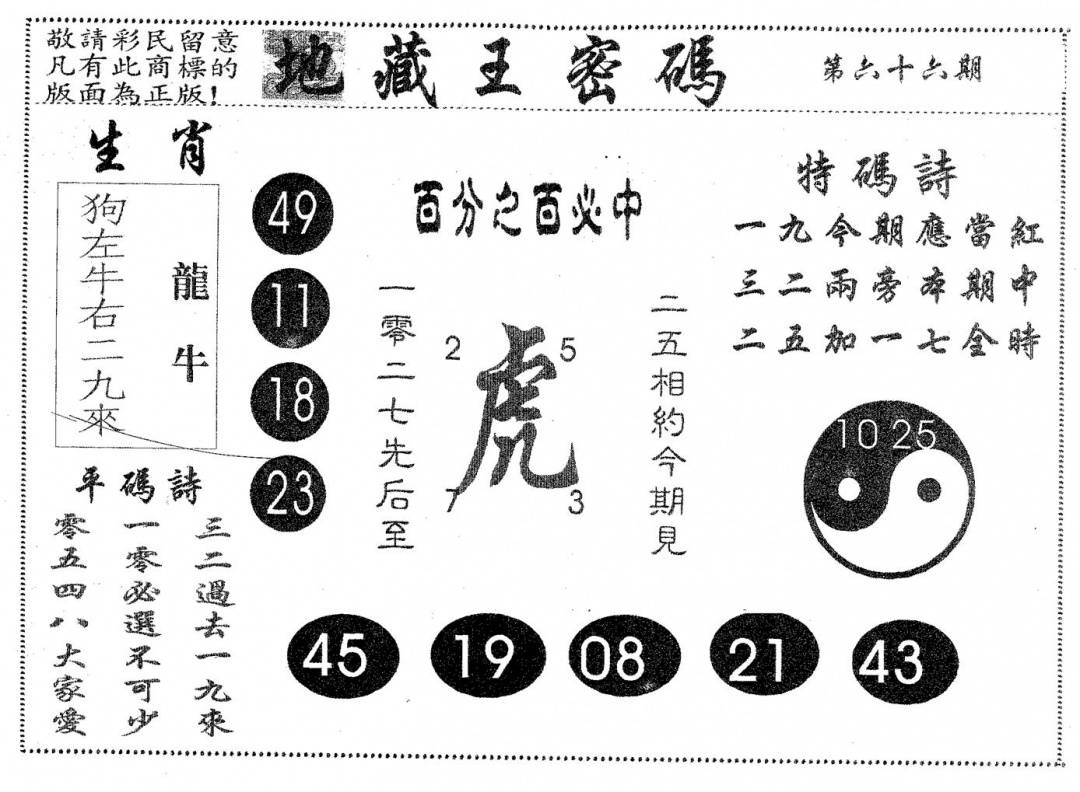 敬請彩民留意
凡有此商標的
版面為正版!
地藏王密碼
第六十六期
生肖
狗左牛右二九來
龍牛
49
11
18
23
百分之百必中
一零二七先后至
2
5
虎
7
3
二五相約今期見
特碼詩
一九今期應當紅
三二兩旁本期中
二五加一七全時
10 25
平碼詩
三二過去一九來
一零必選不可少
零五四八大家愛
45
19
08
21
43